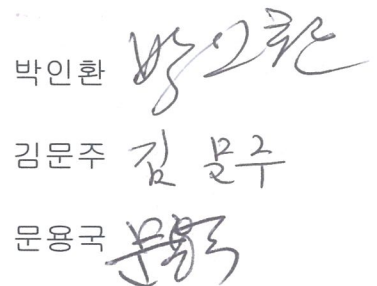 박인환 박인환
김문주 김문주
문용국 문용국